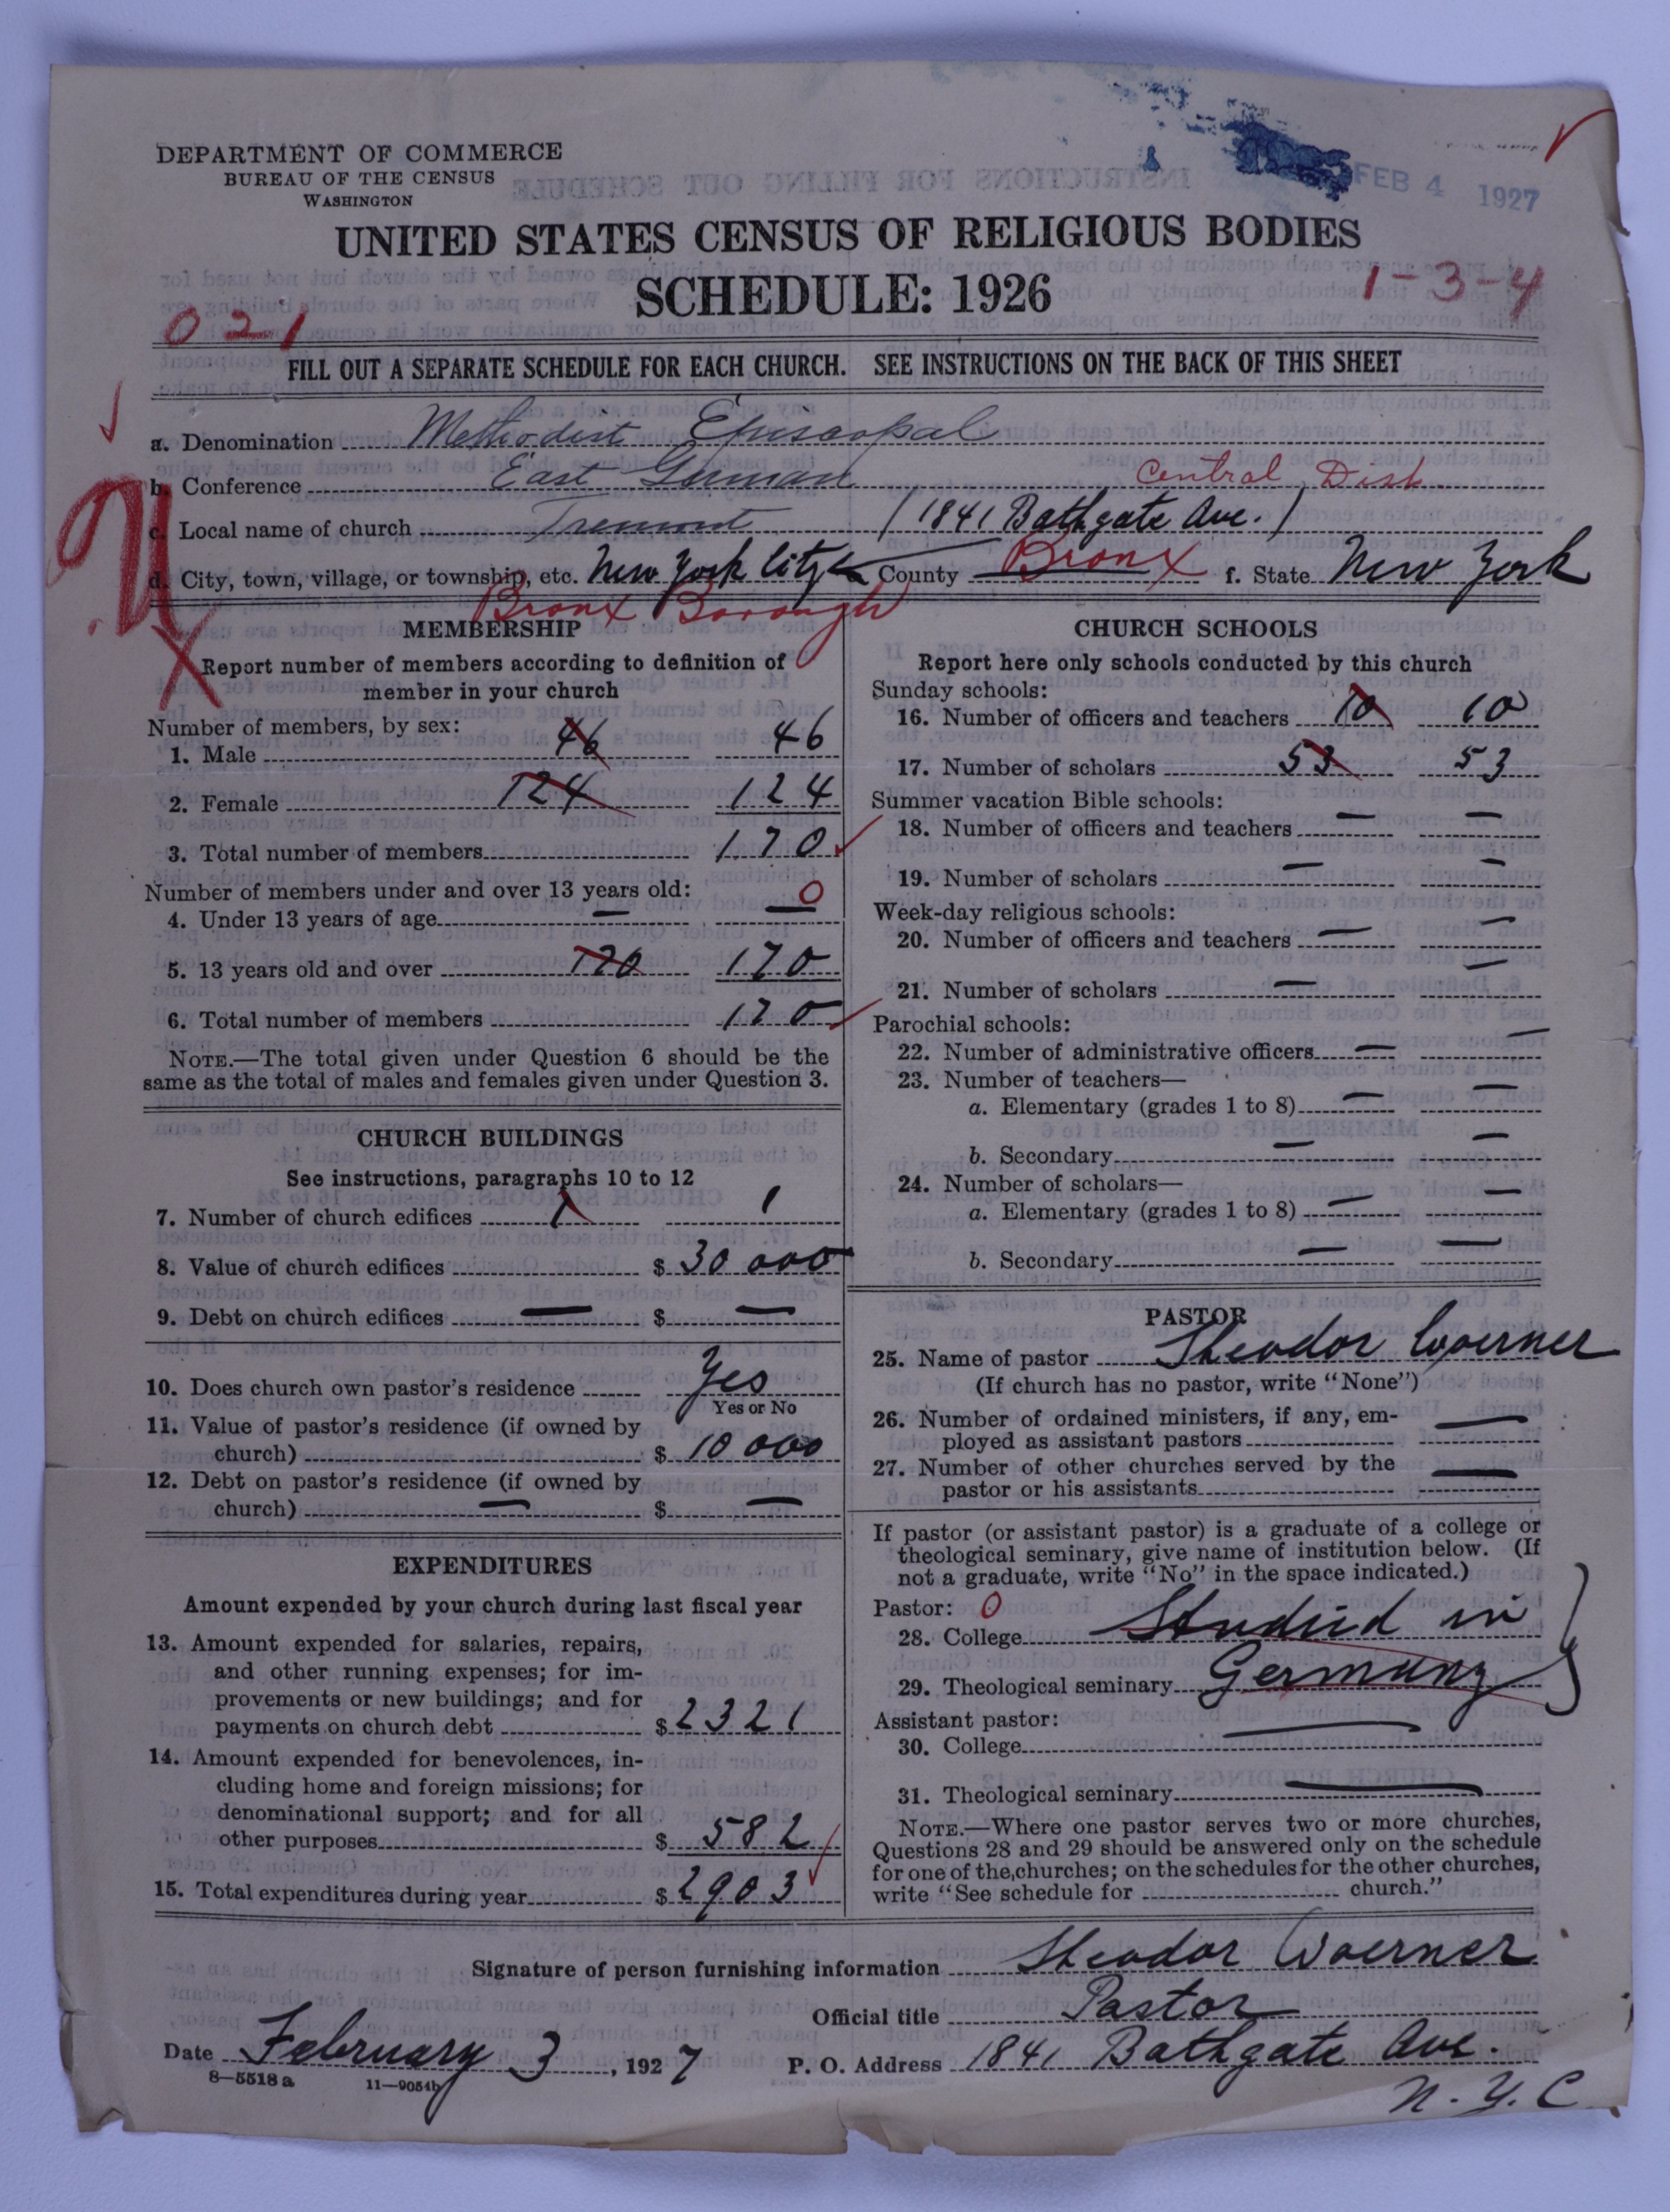 DEPARTMENT OF COMMERCE
BUREAU OF THE CENSUS
WASHINGTON
FEB 4 1927
UNITED STATES CENSUS OF RELIGIOUS BODIES
SCHEDULE: 1926
1-3-4
021
FILL OUT A SEPARATE SCHEDULE FOR EACH CHURCH. SEE INSTRUCTIONS ON THE BACK OF THIS SHEET
a. Denomination Methodist Episcopal
b. Conference East German Central Dist
c. Local name of church Tremont (1841 Bathgate Ave.)
d. City, town, village, or township, etc. New York City County Bronx f. State New York
Bronx Borough
MEMBERSHIP
Report number of members according to definition of
member in your church
Number of members, by sex:
1. Male 46 46
2. Female 124 124
3. Total number of members 170
Number of members under and over 13 years old:
4. Under 13 years of age — — 0
5. 13 years old and over 170 170
6. Total number of members 170
NOTE.—The total given under Question 6 should be the
same as the total of males and females given under Question 3.
CHURCH BUILDINGS
See instructions, paragraphs 10 to 12
7. Number of church edifices 1 1
8. Value of church edifices $ 30 000
9. Debt on church edifices — $ —
10. Does church own pastor's residence Yes
Yes or No
11. Value of pastor's residence (if owned by
church) $ 10 000
12. Debt on pastor's residence (if owned by
church) — $ —
EXPENDITURES
Amount expended by your church during last fiscal year
13. Amount expended for salaries, repairs,
and other running expenses; for im-
provements or new buildings; and for
payments on church debt $ 2321
14. Amount expended for benevolences, in-
cluding home and foreign missions; for
denominational support; and for all
other purposes $ 582
15. Total expenditures during year $ 2903
CHURCH SCHOOLS
Report here only schools conducted by this church
Sunday schools:
16. Number of officers and teachers 10 10
17. Number of scholars 53 53
Summer vacation Bible schools:
18. Number of officers and teachers — —
19. Number of scholars — —
Week-day religious schools:
20. Number of officers and teachers — —
21. Number of scholars — —
Parochial schools:
22. Number of administrative officers — —
23. Number of teachers—
a. Elementary (grades 1 to 8) — —
b. Secondary — —
24. Number of scholars—
a. Elementary (grades 1 to 8) — —
b. Secondary — —
PASTOR
25. Name of pastor Theodor Woerner
(If church has no pastor, write "None")
26. Number of ordained ministers, if any, em-
ployed as assistant pastors —
27. Number of other churches served by the
pastor or his assistants —
If pastor (or assistant pastor) is a graduate of a college or
theological seminary, give name of institution below. (If
not a graduate, write "No" in the space indicated.)
Pastor: 0
28. College Studied in
29. Theological seminary Germany
Assistant pastor:
30. College —
31. Theological seminary —
NOTE.—Where one pastor serves two or more churches,
Questions 28 and 29 should be answered only on the schedule
for one of the churches; on the schedules for the other churches,
write "See schedule for church."
Signature of person furnishing information Theodor Woerner
Official title Pastor
Date February 3, 1927 P. O. Address 1841 Bathgate Ave.
8-5518a 11-9054b
N. Y. C